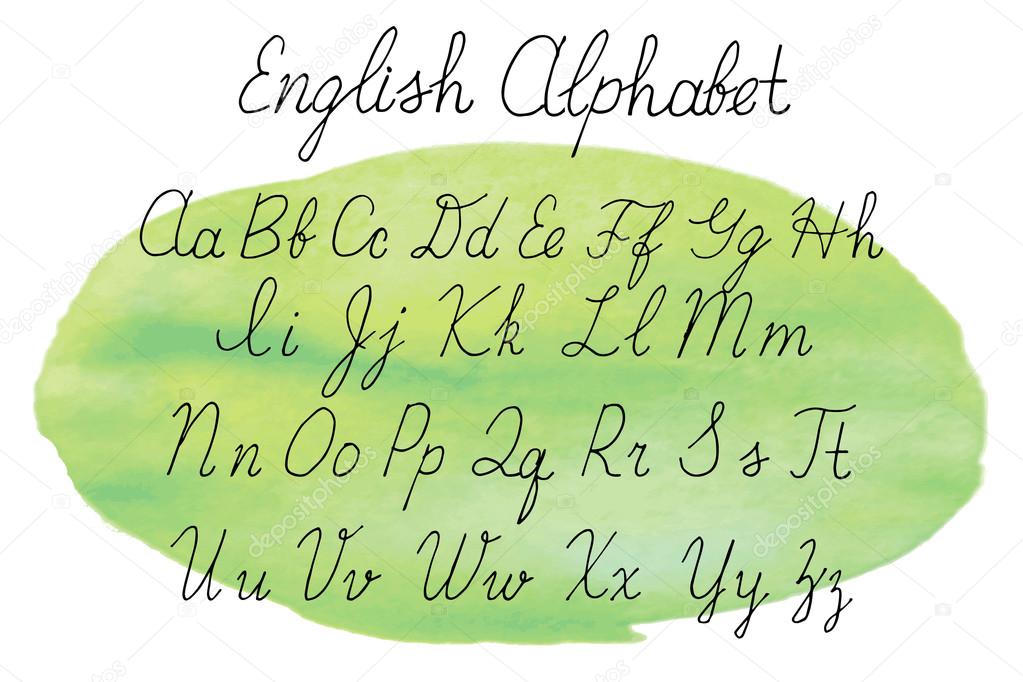 English Alphabet
Aa Bb Cc Dd Ee Ff Gg Hh
Ii Jj Kk Ll Mm
Nn Oo Pp Qq Rr Ss Tt
Uu Vv Ww Xx Yy Zz
depositphotos